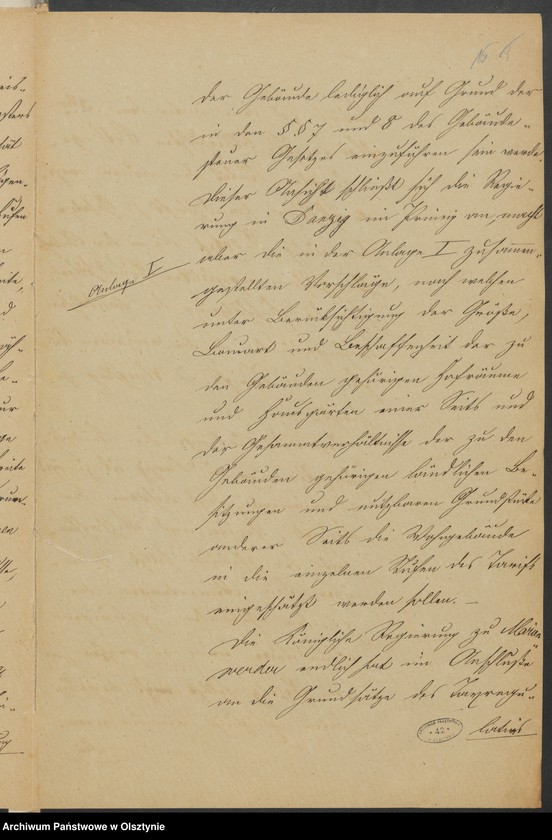 der Gebäude lediglich auf Grund der
in den §§ 7 und 8 des Gebäude-
steuer Gesetzes einzuführen sein werde.
Dieser Ansicht schließt sich die Regie-
rung in Danzig im Prinzip an, macht
aber die in der Anlage I zusammen-
Anlage I
gestellten Vorschläge, nach welchen
unter Berücksichtigung der Größe,
Bauart und Beschaffenheit der zu
den Gebäuden gehörigen Hofräume
und Hausgärten einer Seits und
der Gesammtverhältnisse der zu den
Gebäuden gehörigen ländlichen Be-
sitzungen und nutzbaren Grundstücke
anderer Seits die Wohngebäude
in die einzelnen Stufen des Tarifs
eingeschätzt werden sollen. —
Die Königliche Regierung zu Marien-
werder endlich hat im Anschluße
an die Grundsätze des Taxregu-
lativs
42
Archiwum Państwowe w Olsztynie